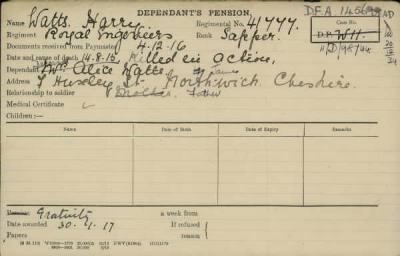 DEPENDANT'S PENSION.
Name Watts, Harry. Regimental No. 4777.
Regiment Royal Engineers Rank Sapper.
Documents received from Paymaster 4.12.16
Date and cause of death 14.8.15. Killed in action.
Dependant Alice Watts. James
Address 7 Huxley St. Northwich. Cheshire.
Relationship to soldier Mother. Father
Medical Certificate
Children:—
Name Date of Birth. Date of Expiry. REMARKS.
Gratuity a week from
Date awarded 30.4.17 If refused
Papers
Case No.